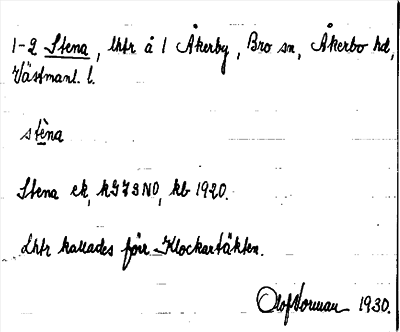 1-2 Stena, lhtr å 1 Åkerby, Bro sn, Åkerbo hd,
Västmanl. l.
stèna
Stena ek, hG73NO, kb 1920.
Lhtr kallades förr Klockartäkten.
Olof Norman 1930.